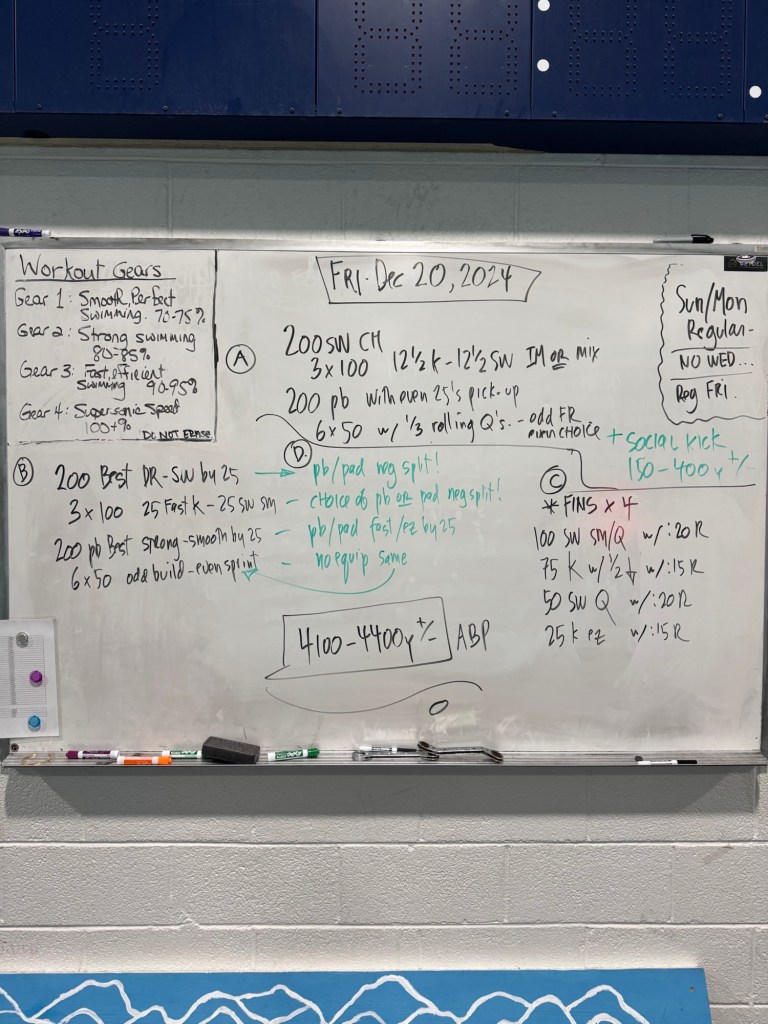 Workout Gears
Gear 1: Smooth, Perfect
Swimming. 70-75%
Gear 2: Strong swimming
80-85%
Gear 3: Fast, efficient
Swimming 90-95%
Gear 4: Supersonic Speed
100+%
DO NOT ERASE
FRI. Dec 20, 2024
Sun/Mon
Regular-
NO WED...
Reg FRI.
A
200 SW CH
3 x 100 12½ K - 12½ SW IM OR MIX
200 pb with even 25's pick-up
6 x 50 w/ 1/3 rolling Q's. - odd FR
even CHOICE
+ Social Kick
150-400y +/-
B
200 Best DR-SW by 25
3 x 100 25 Fast K - 25 SW SM
200 pb Best strong-smooth by 25
6 x 50 odd build - even sprint
D.
pb/pad neg split!
- choice of pb OR pad neg split!
- pb/pad fast/ez by 25
- no equip same
C
* FINS x 4
100 SW SM/Q w/ :20 R
75 K w/ ½ ↓ w/ :15 R
50 SW Q w/ :20 R
25 K ez w/ :15 R
4100-4400y +/- ABP